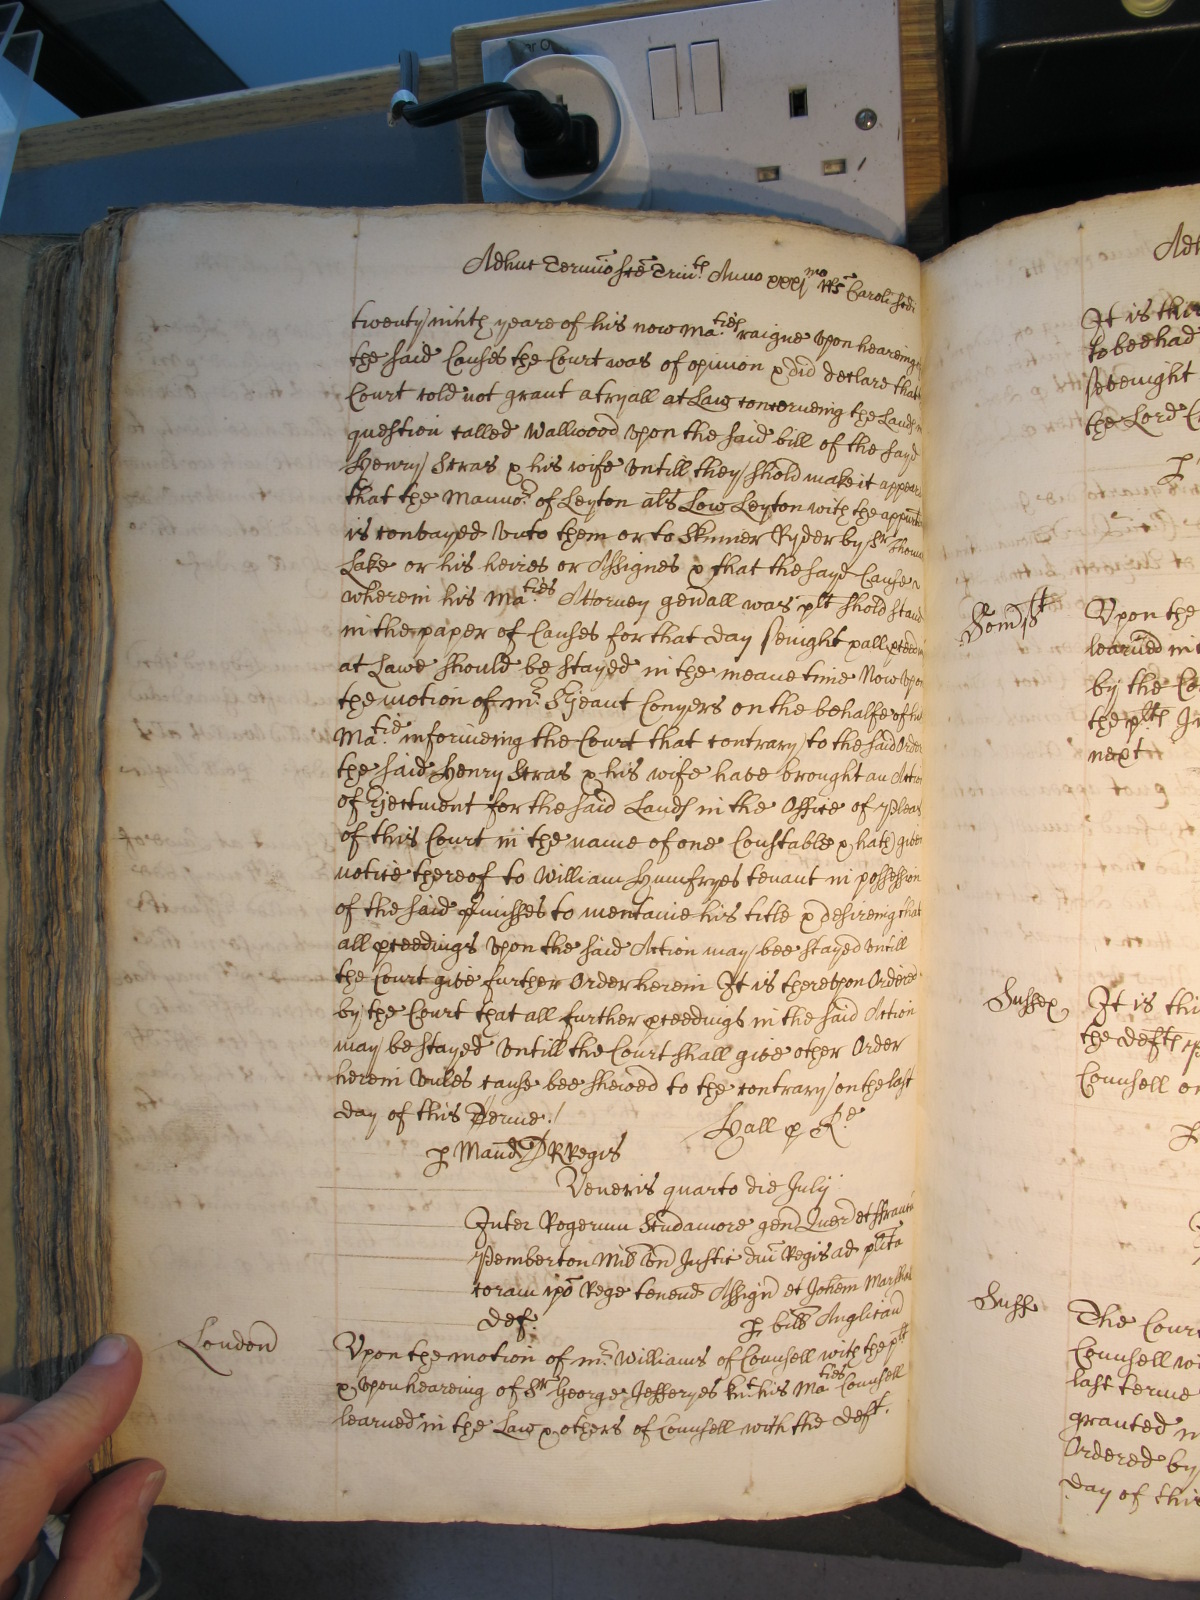 Adhuc Termio Sce Trint Anno xxxj mo Rs Caroli Scdi
twenty ninth yeare of his now Ma.ties raigne vpon heareing
the said Causes the Court was of opinion & did declare that
Court cold not grant a tryall at Law concerneing the Lands
question called Wallwood vpon the said bill of the sayd
Henry & his wife vntill they shold make it appeare
that the Mannor of Leyton als Low Leyton with the
is conveyed vnto them or to Skinner Ryder by Sr Thomas
Lake or his heires or Assignes & that the sayd Cause
wherein his Ma.ties Attorney gen'all was plt shold stand
in the paper of Causes for that day senight & all
at Lawe should be stayed in the meane time Now vpon
the motion of mr. Conyers on the behalfe of his
Ma.tie informeing the Court that contrary to the said Order
the said Henry & his wife have brought an Action
of Ejectment for the said Lands in the Office of Pleas
of this Court in the name of one Constable & hath given
notice thereof to William Humfryes tenant in possession
of the said p'misses to mentaine his title & desireing that
all p'ceedings vpon the said Action may bee stayed vntill
the Court give further Order herein It is therevpon Ordered
by the Court that all further p'ceedings in the said Action
may be stayed vntill the Court shall give other Order
herein vnles cause bee shewed to the contrary on the last
day of this Terme./
Hall p Re
p Mand RRegis
Veneris quarto die July
Inter Rogerum Scudamore gen Quer et
Pemberton Mil vn Justic dni Regis ad plita
coram ipo Rege tenend Assign et Johem
Def.
p bill Anglican
London
Vpon the motion of mr. Williams of Counsell with the plt
& vpon heareing of Sr George Jefferyes knt his Ma.ties Counsell
learned in the Law & others of Counsell with the Deft.
It is this
to bee had
sevenight
the Lord
Vpon the
learned in
by the
the
next
Sussex
It is thi
the
Counsell
Suss
The Court
Counsell
last terme
granted
Ordered by
day of this